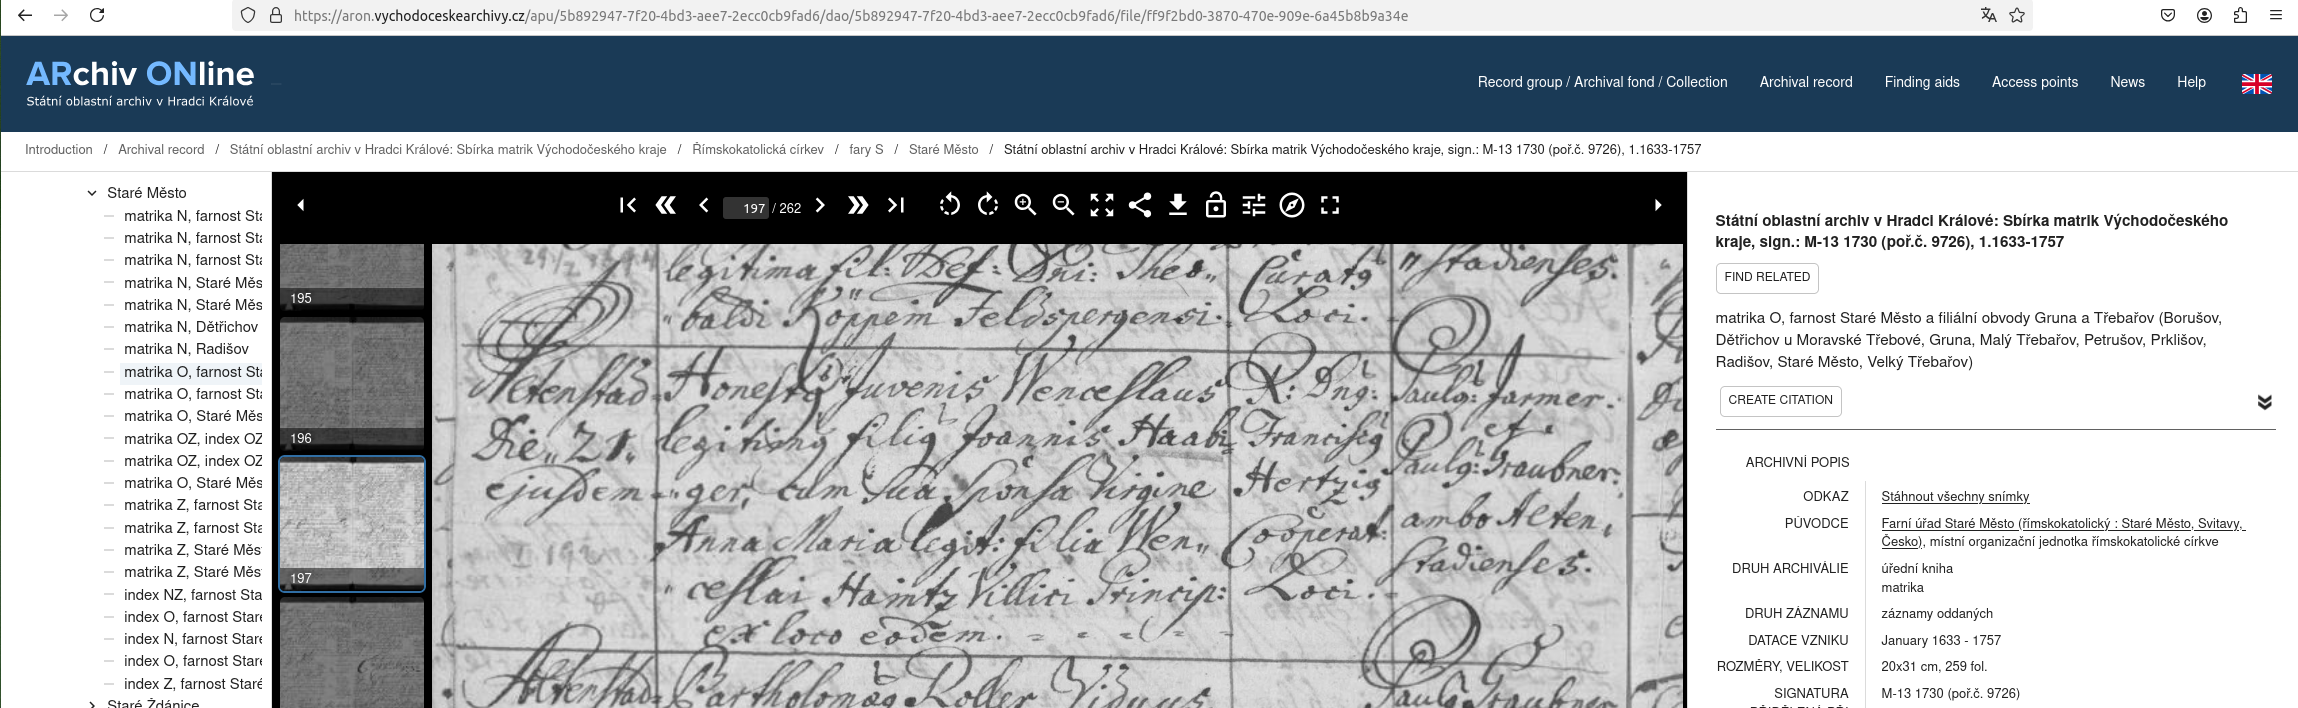 https://aron.vychodoceskearchivy.cz/apu/5b892947-7f20-4bd3-aee7-2ecc0cb9fad6/dao/5b892947-7f20-4bd3-aee7-2ecc0cb9fad6/file/ff9f2bd0-3870-470e-909e-6a45b8b9a34e
ARchiv ONline
Státní oblastní archiv v Hradci Králové
Record group / Archival fond / Collection Archival record Finding aids Access points News Help
Introduction / Archival record / Státní oblastní archiv v Hradci Králové: Sbírka matrik Východočeského kraje / Římskokatolická církev / fary S / Staré Město / Státní oblastní archiv v Hradci Králové: Sbírka matrik Východočeského kraje, sign.: M-13 1730 (poř.č. 9726), 1.1633-1757
Staré Město
matrika N, farnost Sta
matrika N, farnost Sta
matrika N, farnost Sta
matrika N, Staré Měs
matrika N, Staré Měs
matrika N, Dětřichov
matrika N, Radišov
matrika O, farnost Sta
matrika O, farnost Sta
matrika O, Staré Měs
matrika OZ, index OZ
matrika OZ, index OZ
matrika O, Staré Měs
matrika Z, farnost Sta
matrika Z, farnost Sta
matrika Z, Staré Měs
matrika Z, Staré Měs
index NZ, farnost Sta
index O, farnost Staré
index N, farnost Staré
index O, farnost Staré
index Z, farnost Staré
Staré Ždánice
197 / 262
195
196
197
legitima fil: Def: Dni: Theo„
„baldi Köppem Feldspergensi.
Curatq
Loci.
„stadienses.
Altenstad
Die 21.
ejusdem
Honestq Juvenis Wenceslaus
legitimq filiq Joannis Haabi„
„ger, cum sua sponsa Virgine
Anna Maria legit: filia Wen„
„ceslai Haintz Villici Princip:
ex loco eodem.
R: Dnq:
Franciscq
Hertzig
Cooperat:
Loci.
Paulq: Farmer.
et
Paulq: Graubner.
ambo Alten„
stadienses.
Altenstad
Bartholomaeq Koller Viduus
Paulq Graubner
Státní oblastní archiv v Hradci Králové: Sbírka matrik Východočeského
kraje, sign.: M-13 1730 (poř.č. 9726), 1.1633-1757
FIND RELATED
matrika O, farnost Staré Město a filiální obvody Gruna a Třebařov (Borušov,
Dětřichov u Moravské Třebové, Gruna, Malý Třebařov, Petrušov, Prklišov,
Radišov, Staré Město, Velký Třebařov)
CREATE CITATION
ARCHIVNÍ POPIS
ODKAZ Stáhnout všechny snímky
PŮVODCE Farní úřad Staré Město (římskokatolický : Staré Město, Svitavy,
Česko), místní organizační jednotka římskokatolické církve
DRUH ARCHIVÁLIE úřední kniha
matrika
DRUH ZÁZNAMU záznamy oddaných
DATACE VZNIKU January 1633 - 1757
ROZMĚRY, VELIKOST 20x31 cm, 259 fol.
SIGNATURA M-13 1730 (poř.č. 9726)